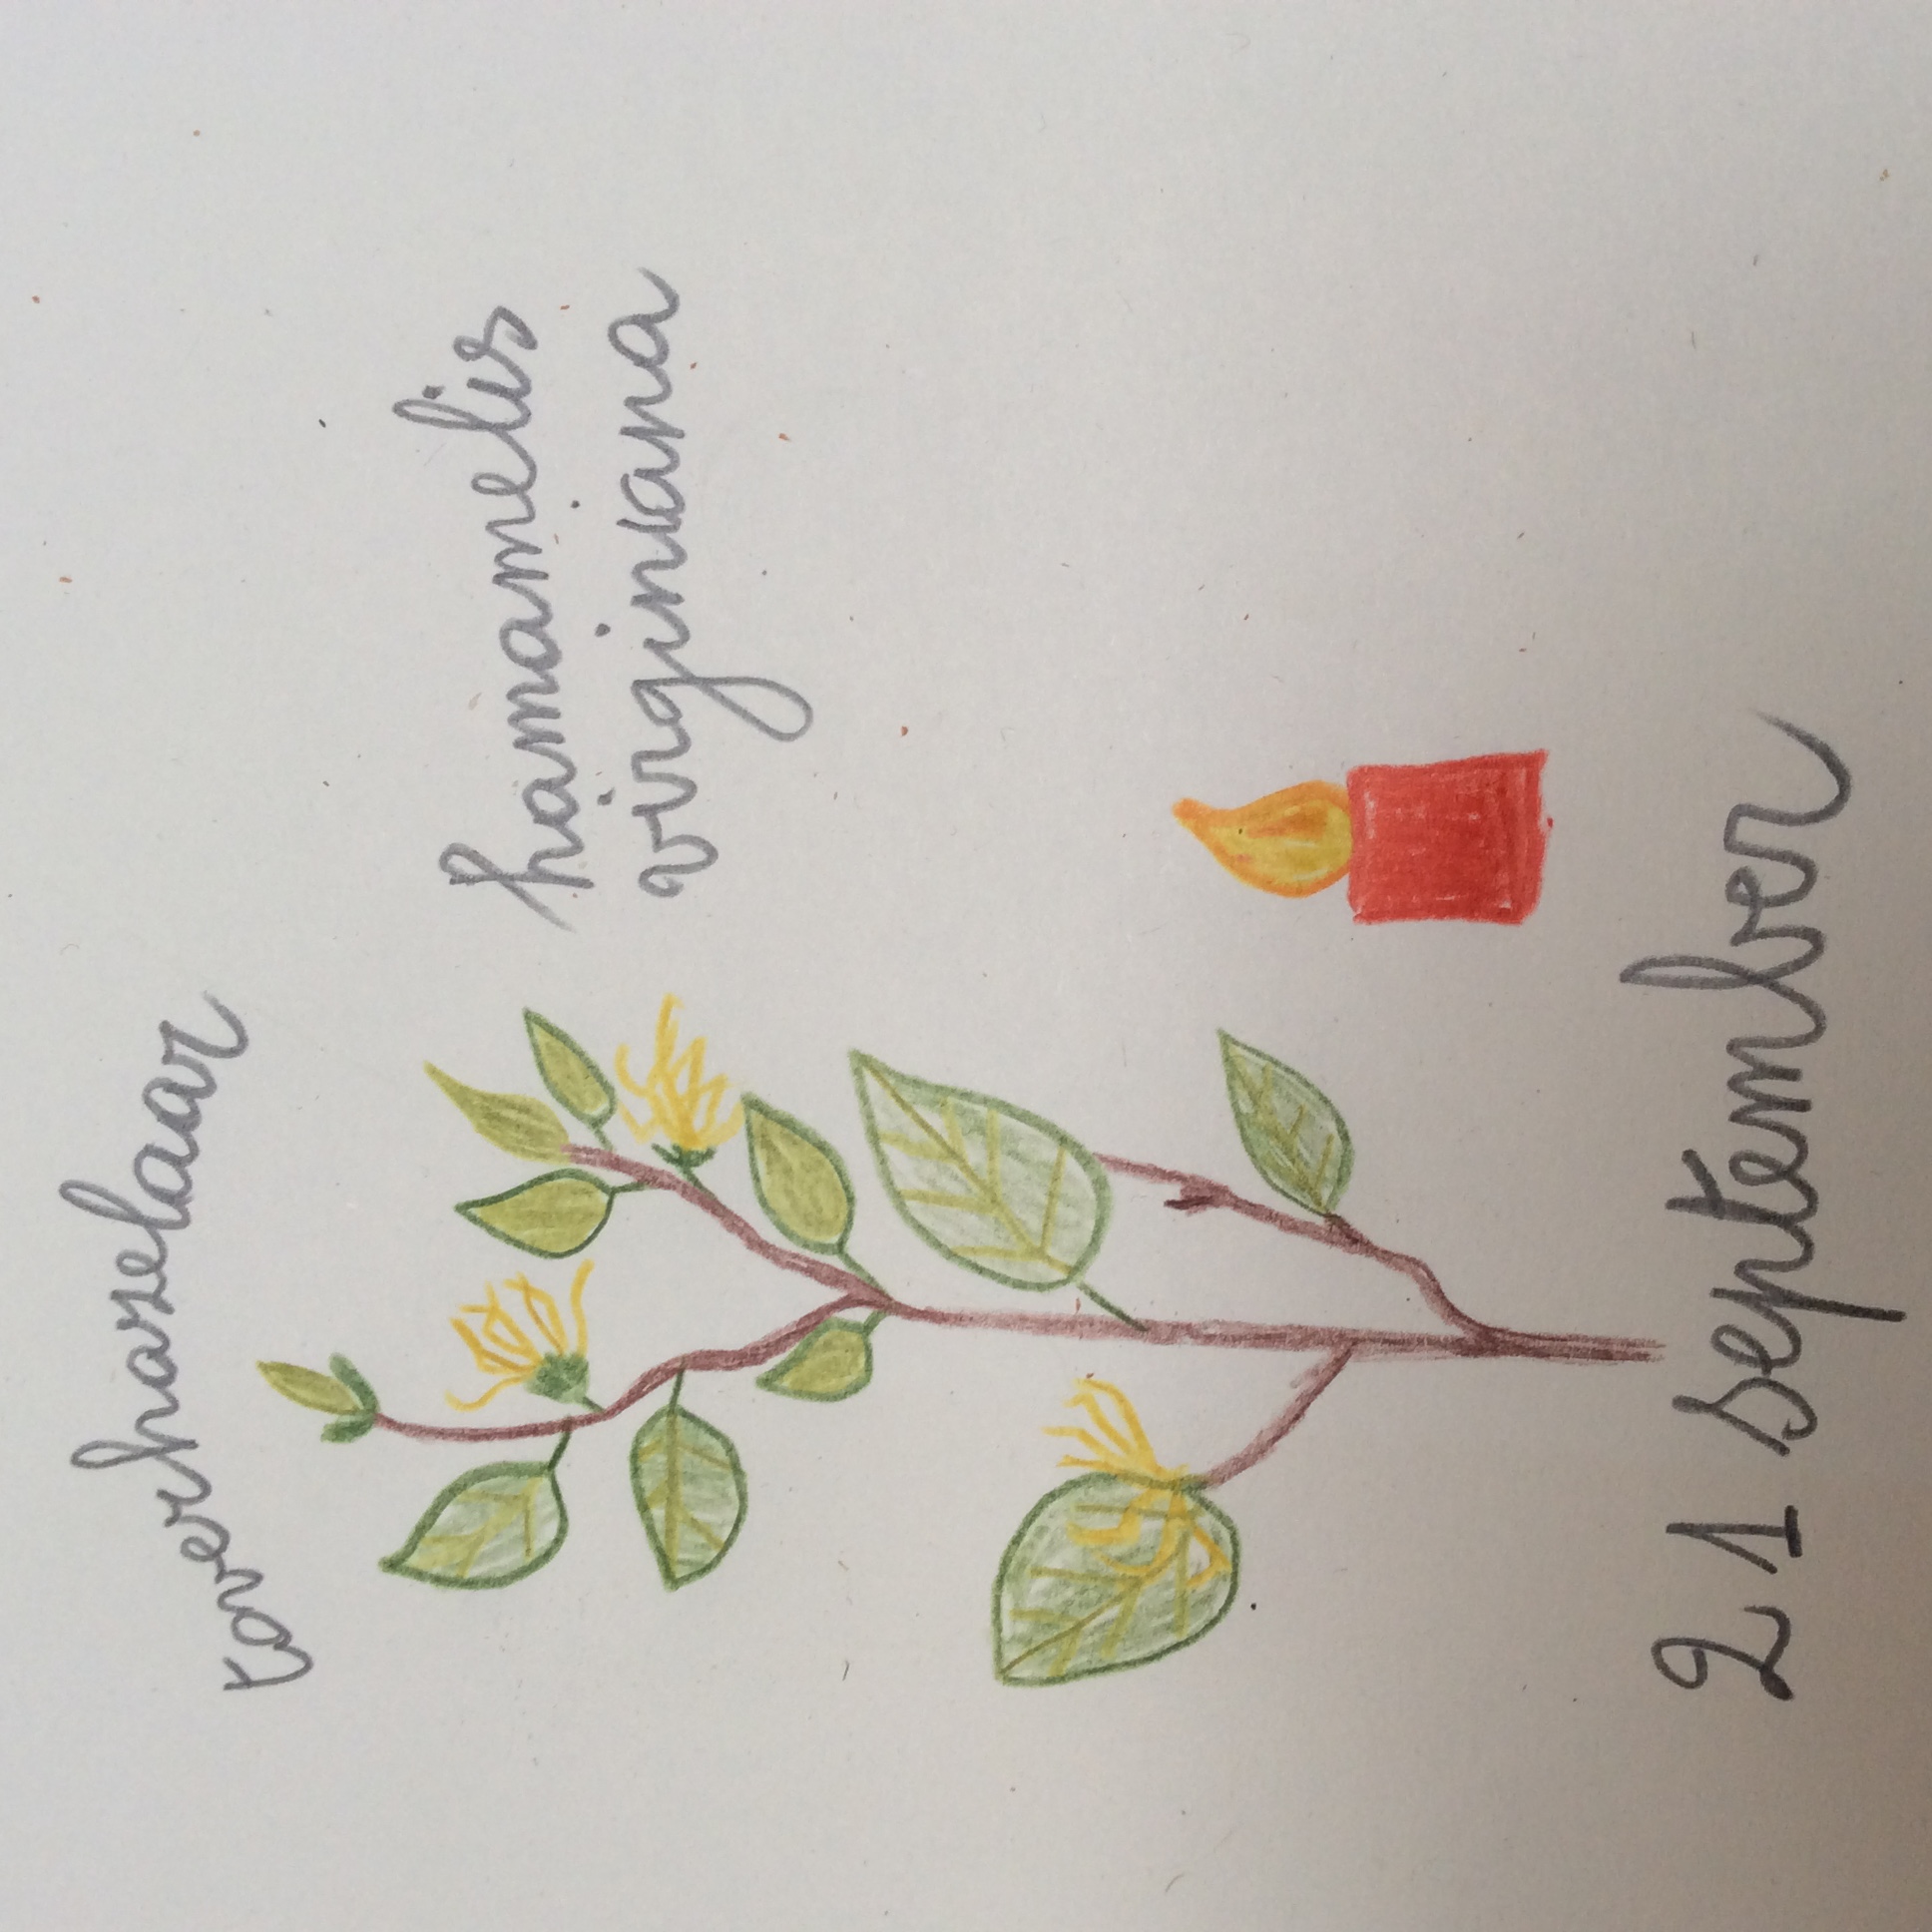 toverhazelaar
hamamelis
virginiana
21 september